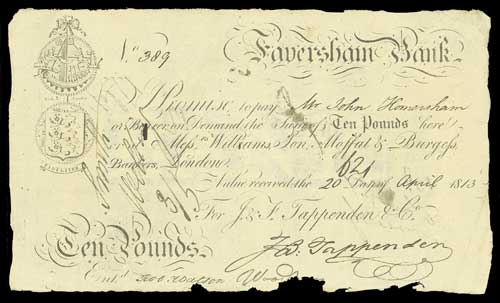 No. 389 Faversham Bank
I Promise to pay Mr. John Homersham
or Bearer on Demand the Sum of Ten Pounds here
or at Messrs. Williams, Son, Moffat & Burgess
Bankers, London.
Value received the 20 Day of April 1813
For J. & F. Tappenden & Co.
Ten Pounds. J B Tappenden
Entd.